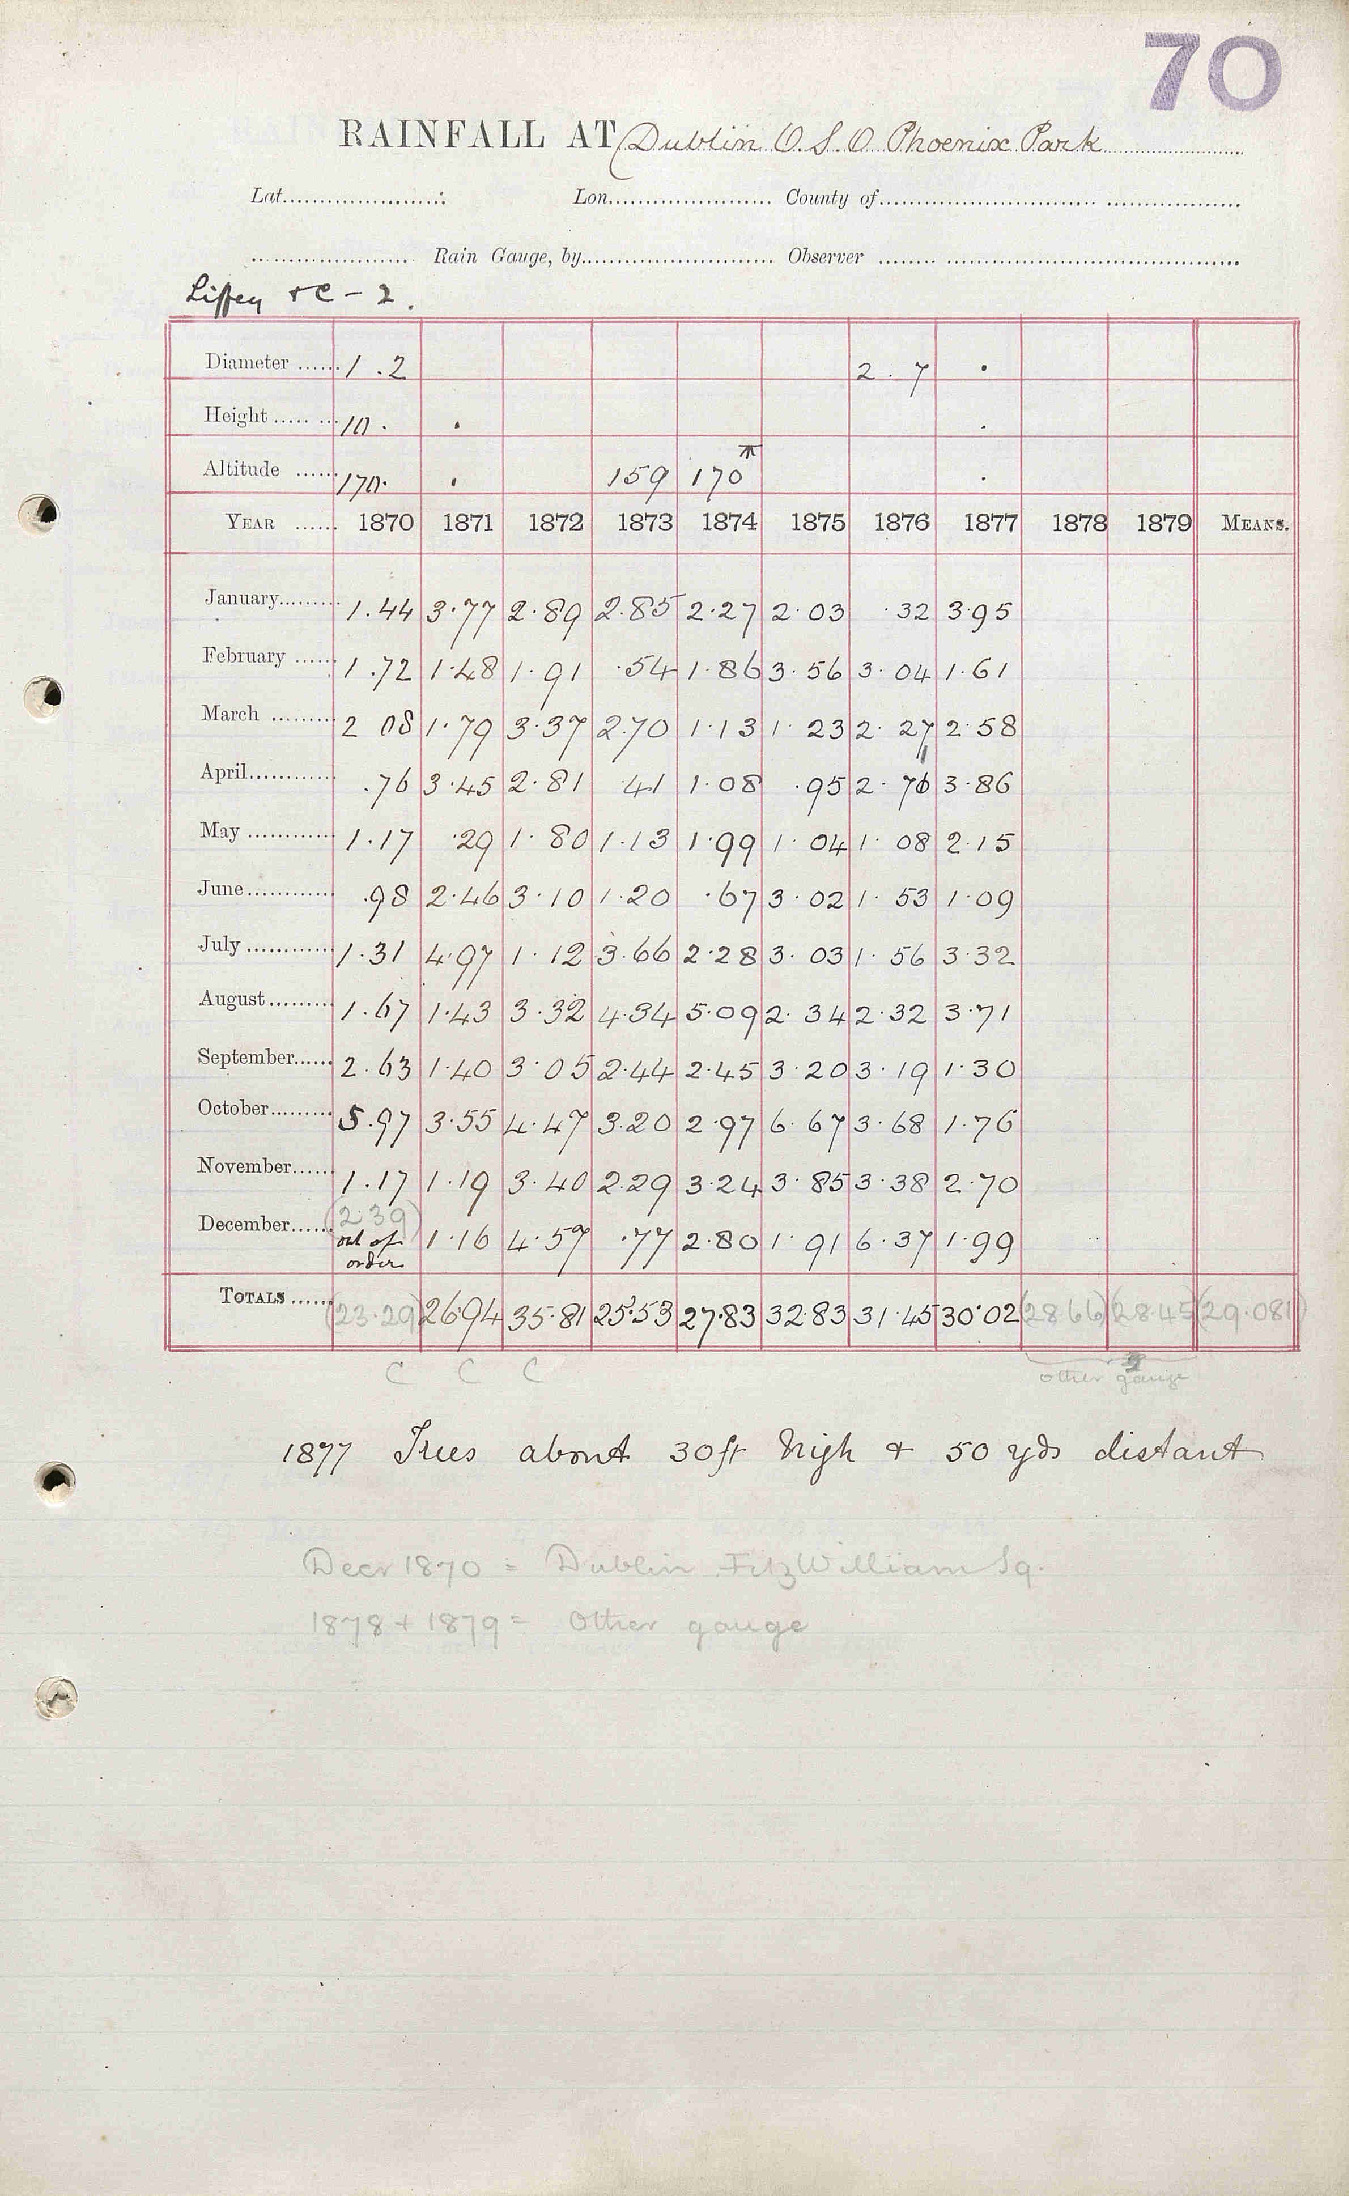 70
RAINFALL AT Dublin O.S.O Phoenix Park
Lat. Lon. County of
Rain Gauge, by Observer
Liffey + C - 2.
Diameter 1 .2 2 . 7 .
Height 10 . . .
Altitude 170 . . 159 170 .
YEAR 1870 1871 1872 1873 1874 1875 1876 1877 1878 1879 MEANS.
January 1.44 3.77 2.89 2.85 2.27 2.03 .32 3.95
February 1.72 1.48 1.91 .54 1.86 3.56 3.04 1.61
March 2 08 1.79 3.37 2.70 1.13 1.23 2.27 2.58
April .76 3.45 2.81 .41 1.08 .95 2.71 3.86
May 1.17 .29 1.80 1.13 1.99 1.04 1.08 2.15
June .98 2.46 3.10 1.20 .67 3.02 1.53 1.09
July 1.31 4.97 1.12 3.66 2.28 3.03 1.56 3.32
August 1.67 1.43 3.32 4.34 5.09 2.34 2.32 3.71
September 2.63 1.40 3.05 2.44 2.45 3.20 3.19 1.30
October 5.97 3.55 4.47 3.20 2.97 6.67 3.68 1.76
November 1.17 1.19 3.40 2.29 3.24 3.85 3.38 2.70
December (2.39) out of order 1.16 4.57 .77 2.80 1.91 6.37 1.99
TOTALS (23.29) 26.94 35.81 25.53 27.83 32.83 31.45 30.02 (28.66) (28.45) (29.081)
C C C other gauge
1877 Trees about 30ft high & 50 yds distant
Decr 1870 = Dublin FitzWilliam Sq.
1878 + 1879 = Other gauge